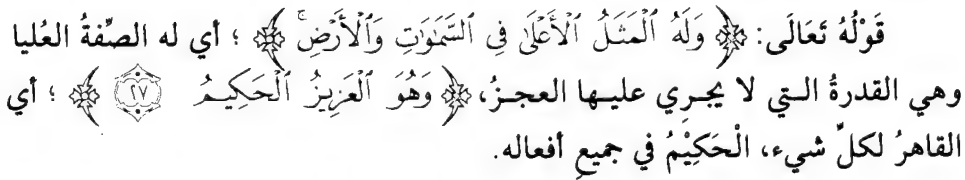 قَوْلُهُ تَعَالَى: ﴿ وَلَهُ ٱلْمَثَلُ ٱلْأَعْلَىٰ فِى ٱلسَّمَٰوَٰتِ وَٱلْأَرْضِۚ ﴾ ؛ أي له الصِّفةُ العُليا
وهي القدرةُ التي لا يجري عليها العجزُ، ﴿ وَهُوَ ٱلْعَزِيزُ ٱلْحَكِيمُ ٢٧ ﴾ ؛ أي
القاهرُ لكلِّ شيء، الْحَكِيْمُ في جميعِ أفعاله.